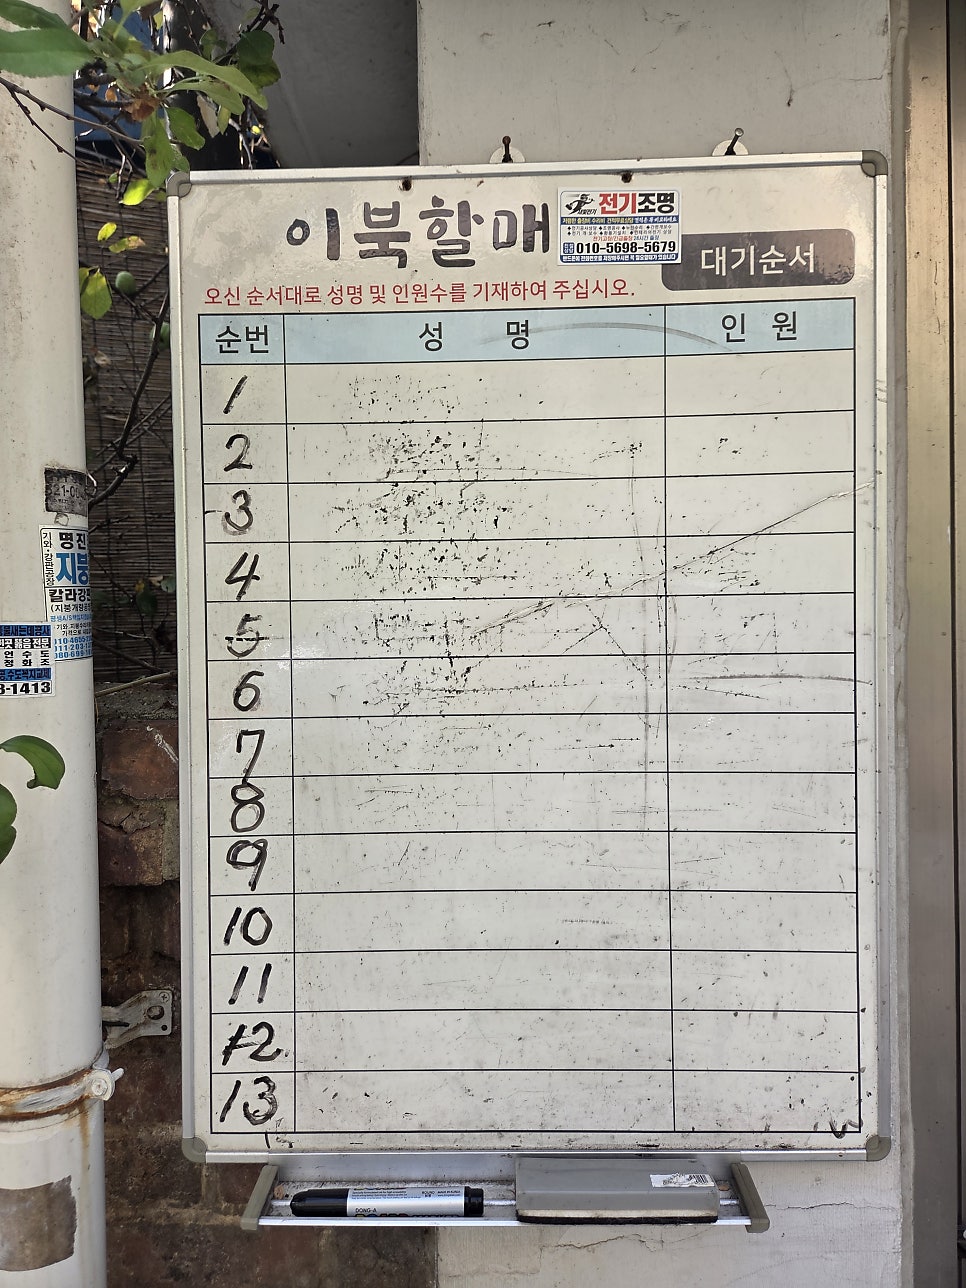 이북할매
전기조명
010-5698-5679
대기순서
오신 순서대로 성명 및 인원수를 기재하여 주십시오.
순번 성 명 인 원
1
2
3
4
5
6
7
8
9
10
11
12
13
21-0
기와·강판공장
명진
지붕
칼라강판
(지붕개량공
수도
정화조
3-1413
DONG-A